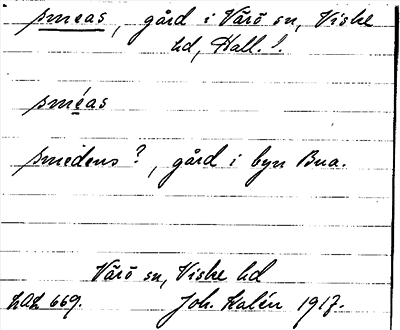 smeas, gård i Värö sn, Viske
hd, Hall. l.
sméas
smedens?, gård i byn Bua.
Värö sn, Viske hd
LAL 669. Joh. Kalén 1917.